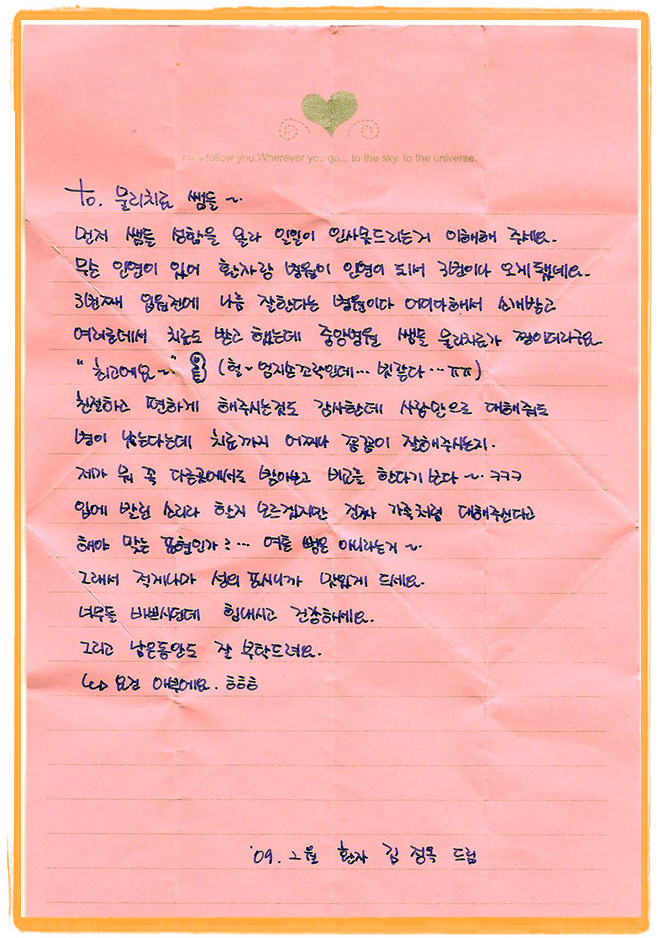 I will follow you.Wherever you go... to the sky. to the universe.
to. 물리치료 쌤들~
먼저 쌤들 성함을 몰라 일일이 인사못드리는거 이해해 주세요.
무슨 인연이 있어 환자랑 병원이 인연이 되서 3번이나 오게됐네요.
3번째 입원전에 나름 잘한다는 병원이다 어디다해서 소개받고
여러군데서 치료도 받고 했는데 중앙병원 쌤들 물리치료가 짱이더라구요
"최고에요~" (헐~엄지손꼬락인데… 빗같다…ㅠㅠ)
친절하고 편하게 해주시는것도 감사한데 사람만으로 대해줘도
병이 낫는다는데 치료까지 어쩌나 꼼꼼이 잘해주시는지.
제가 뭐 꼭 다른곳에서도 받아보고 비교를 한다기 보다~. ㅋㅋㅋ
입에 발린 소리라 할지 모르겠지만 진짜 가족처럼 대해주신다고
해야 맞는 표현인가?… 여튼 뻥은 아니라는거~
그래서 적게나마 성의 표시니까 맛있게 드세요.
너무들 바쁘시던데 힘내시고 건강하세요.
그리고 남은동안도 잘 부탁드려요.
요건 아부에요. ㅎㅎㅎ
'09. 2월 환자 김정옥 드림